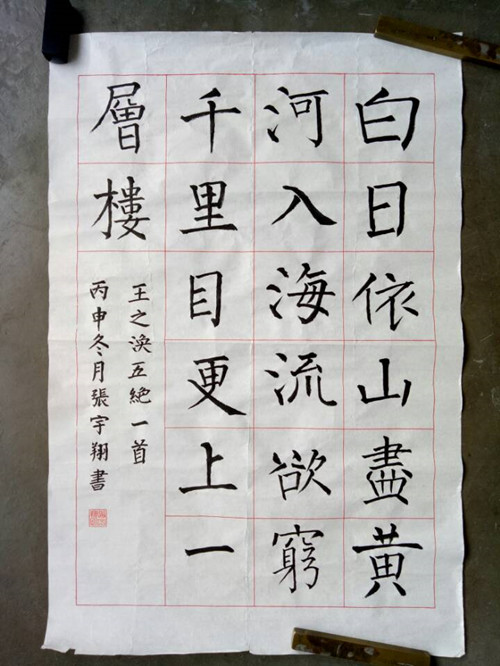 白日依山盡黄
河入海流欲窮
千里目更上一
層樓
王之涣五絶一首
丙申冬月張宇翔書